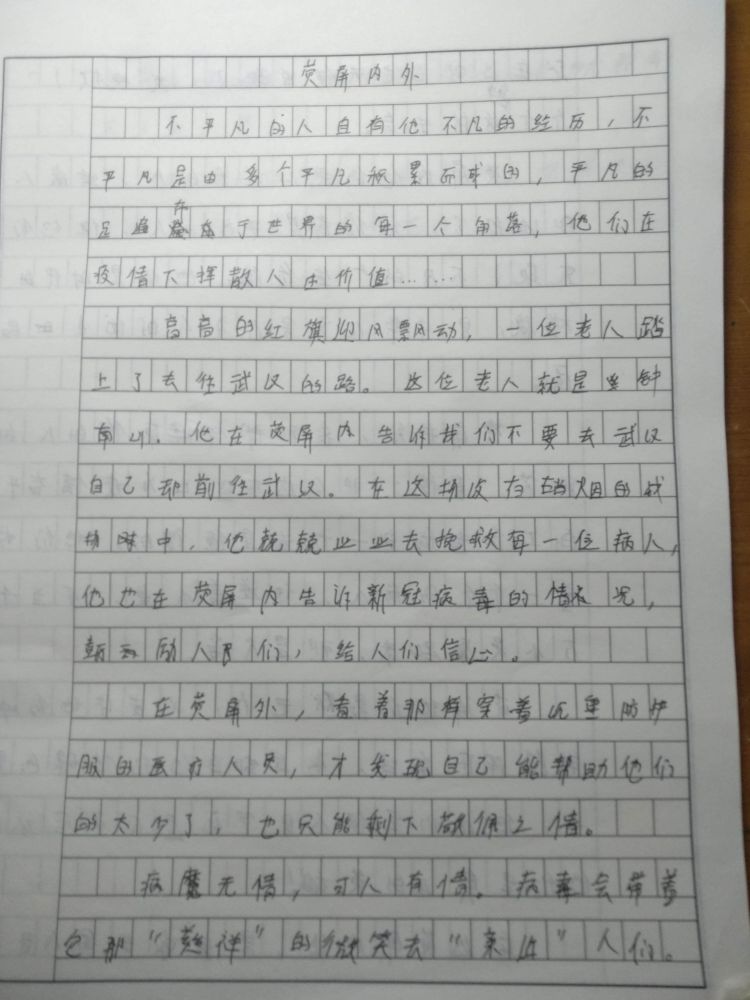 荧屏内外
不平凡的人自有他不凡的经历，不
平凡是由多个平凡积累而成的，平凡的
足迹存在于世界的每一个角落，他们在
疫情下挥散人生价值……
高高的红旗迎风飘动，一位老人踏
上了去往武汉的路。这位老人就是钟
南山，他在荧屏内告诉我们不要去武汉
自己却前往武汉。在这场没有硝烟的战
场中，他兢兢业业去抢救每一位病人，
他也在荧屏内告诉新冠病毒的情况，
鼓励人民们，给人们信心。
在荧屏外，看着那样穿着沉重防护
服的医疗人员，才发现自己能帮助他们
的太少了，也只能剩下敬佩之情。
病魔无情，可人有情。病毒会带着
它那“慈祥”的微笑去“亲近”人们。